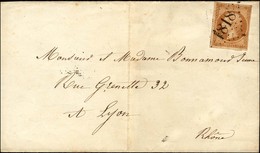 1818
Monsieur et Madame Bonnamond Jeune
Rue Grenette 32
A Lyon
Rhône